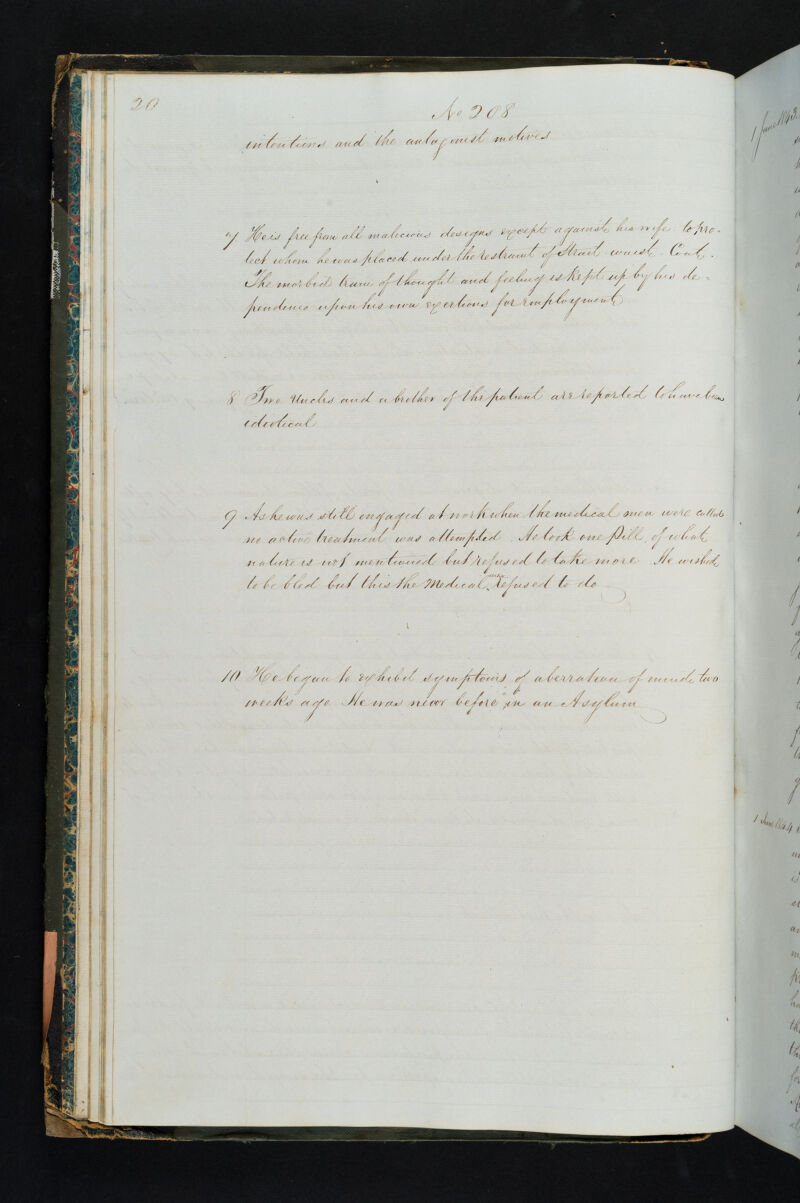 20
No 208
intentions and the antagonist motives
7 He is free from all malicious designs except against his wife to pro-
tect whom he was placed under the restraint of Strait waist. Coat.
The morbid train of thought and feeling is kept up by his de-
pendence upon his own exertions for employment
8 Two Uncles and a brother of the patient are reported to have been
idiotical
9 As he was still engaged at work when the medical men were called
no active treatment was attempted. He took one Pill, of what
nature is not mentioned but refused to take more. He wished
to be bled but this the Medical men refused to do
10 He began to exhibit symptoms of aberration of mind two
weeks ago. He was never before in an Asylum
1 June 1843
1 June 1844